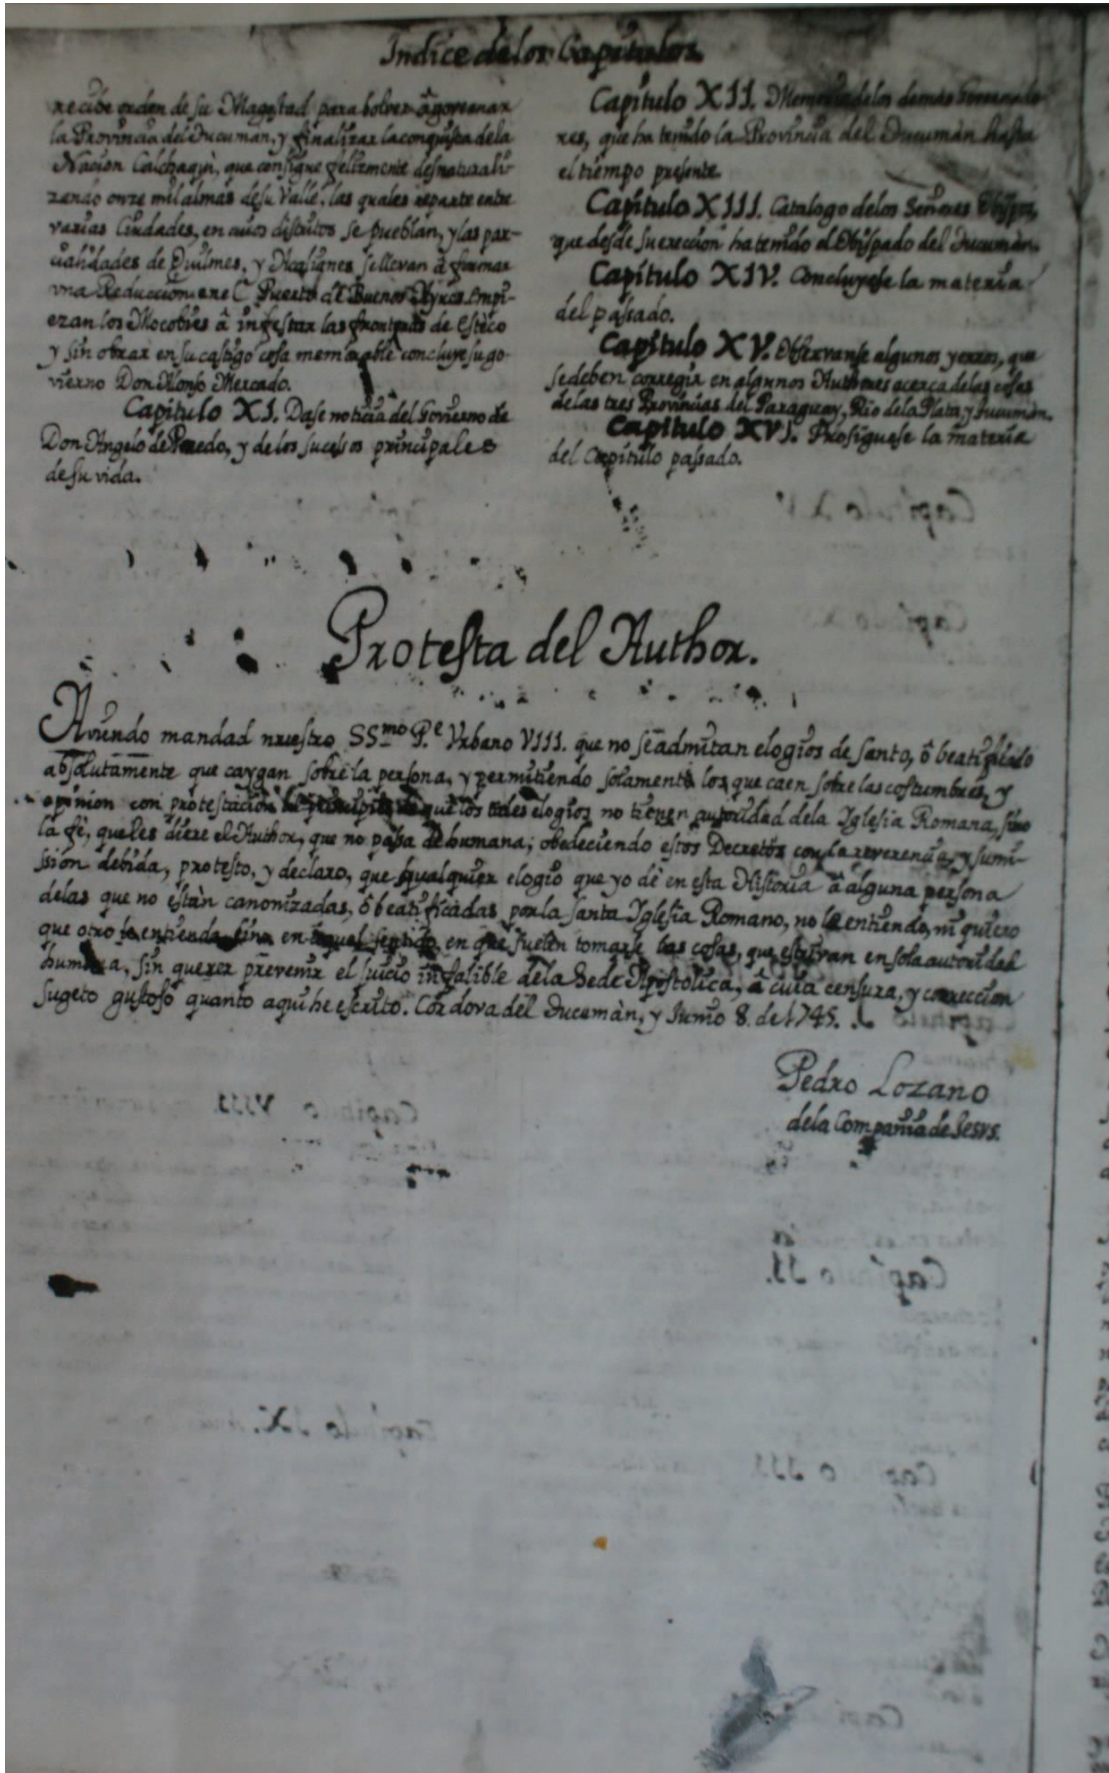 Indice de los Capitulos
recibe orden de su Magestad para bolver â governar
la Provincia del Tucuman, y finalizar la conquista de la
Nacion Calchaquì, que consigue felizmente desnaturali-
zando onze mil almas de su Valle, las quales reparte entre
varias Ciudades, en cuios distritos se pueblan, y las par-
cialidades de Quilmes, y Acalianes se llevan â formar
una Reduccion en el Puerto de Buenos Ayres. Empi-
ezan los Mocobies â infestar las fronteras de Esteco
y sin obrar en su castigo cosa memorable concluye su go-
vierno Don Alonso Mercado.
Capitulo XI. Dase noticia del Govierno de
Don Angelo de Peredo, y de los sucessos principales
de su vida.
Capitulo XII. Memoria de los demàs Governado-
res, que ha tenido la Provincia del Tucumàn hasta
el tiempo presente.
Capitulo XIII. Catalogo de los Señores Obispos,
que desde su ereccion ha tenido el Obispado del Tucumàn.
Capitulo XIV. Concluyese la materia
del passado.
Capitulo XV. Observanse algunos yerros, que
se deben corregir en algunos Authores acerca de las cosas
de las tres Provincias del Paraguay, Rio de la Plata, y Tucumàn.
Capitulo XVI. Prosiguese la materia
del Capitulo passado.
Protesta del Author.
Aviendo mandad nuestro SS.mo P.e Vrbano VIII. que no se admitan elogios de santo, ô beatificado
absolutamente que caygan sobre la persona, y permitiendo solamente los que caen sobre las costumbres, y
opinion con protestacion que los tales elogios no tienen autoridad de la Iglesia Romana, sino
la fè, que les diere el Author, que no passa de humana; obedeciendo estos Decretos con la reverencia, y sumi-
ssion debida, protesto, y declaro, que qualquier elogio que yo dè en esta Historia â alguna persona
de las que no estàn canonizadas, ô beatificadas por la santa Iglesia Romano, no le entiendo, ni quiero
que otro le entienda sino en aquel sentido en que suelen tomarse las cosas, que estrivan en sola autoridad
humana, sin querer prevenir el juicio infalible de la Sede Apostolica, â cuia censura, y correccion
sugeto gustoso quanto aqui he escrito. Cordova del Tucumàn, y Junio 8. de 1745.
Pedro Lozano
de la Compañia de Jesvs.